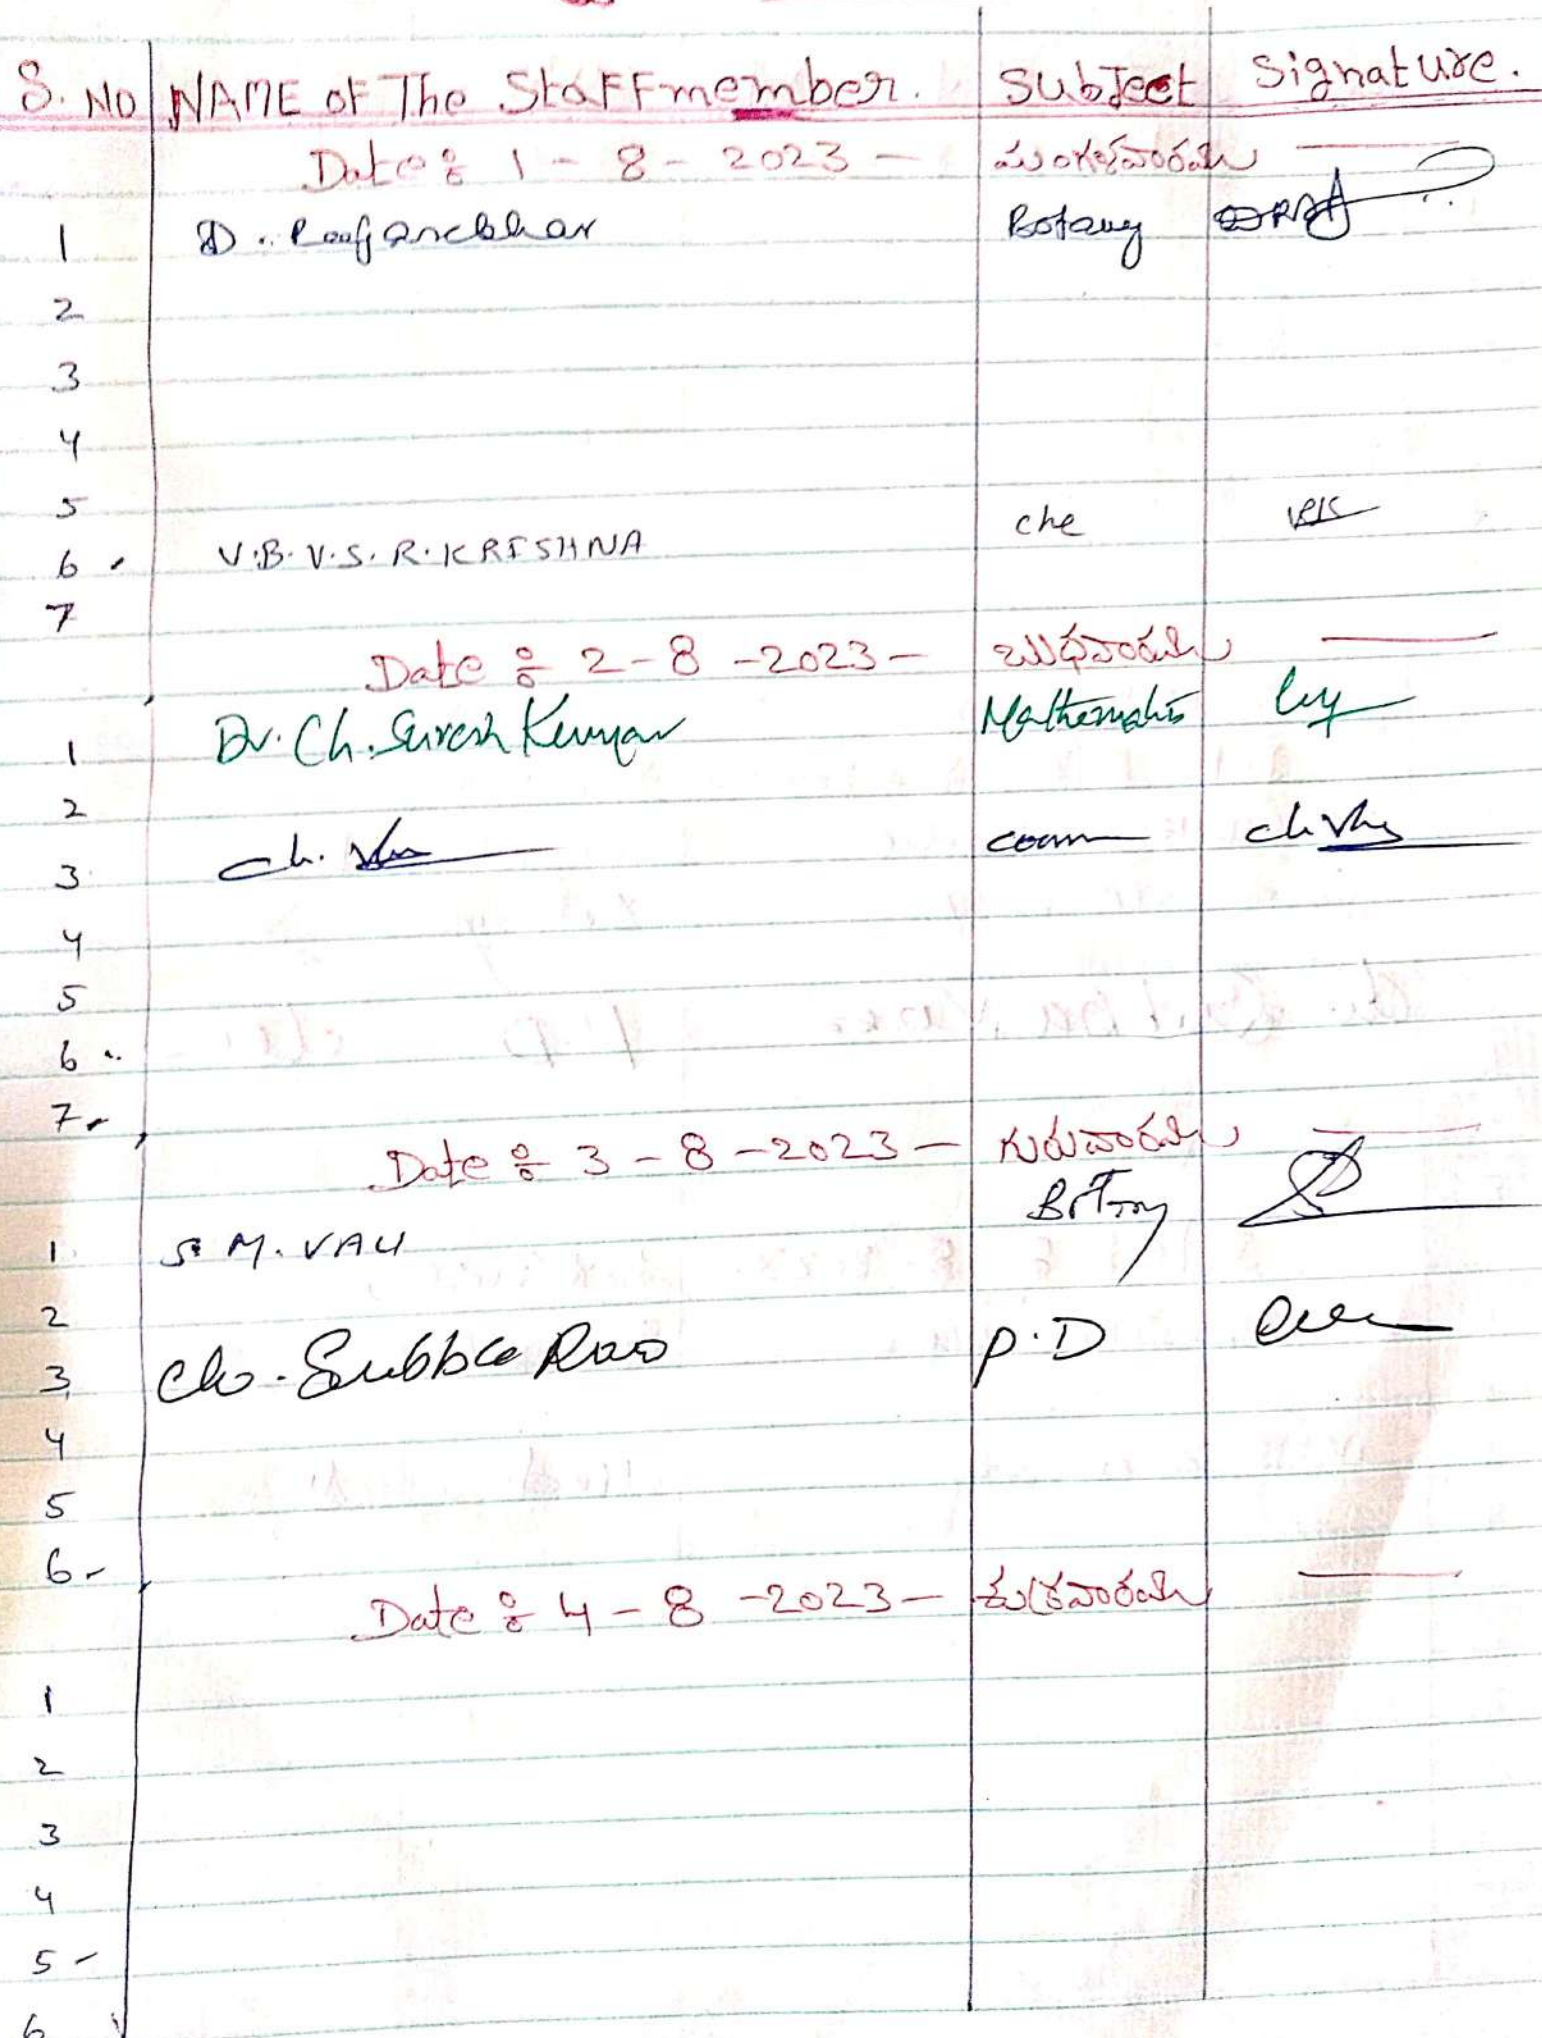 S. NO NAME of The Staff member. Subject Signature.
Date : 1 - 8 - 2023 - మంగళవారము
1 D. Botany
2
3
4
5
6 V.B.V.S.R.KRISHNA che
7
Date : 2 - 8 - 2023 - బుధవారము
1 Dr. Ch. Suresh Kumar Mathematics
2
3 ch. com
4
5
6
7
Date : 3 - 8 - 2023 - గురువారము
1 S M. VALI Botany
2
3 Ch. Subba Rao P.D
4
5
6
Date : 4 - 8 - 2023 - శుక్రవారము
1
2
3
4
5
6